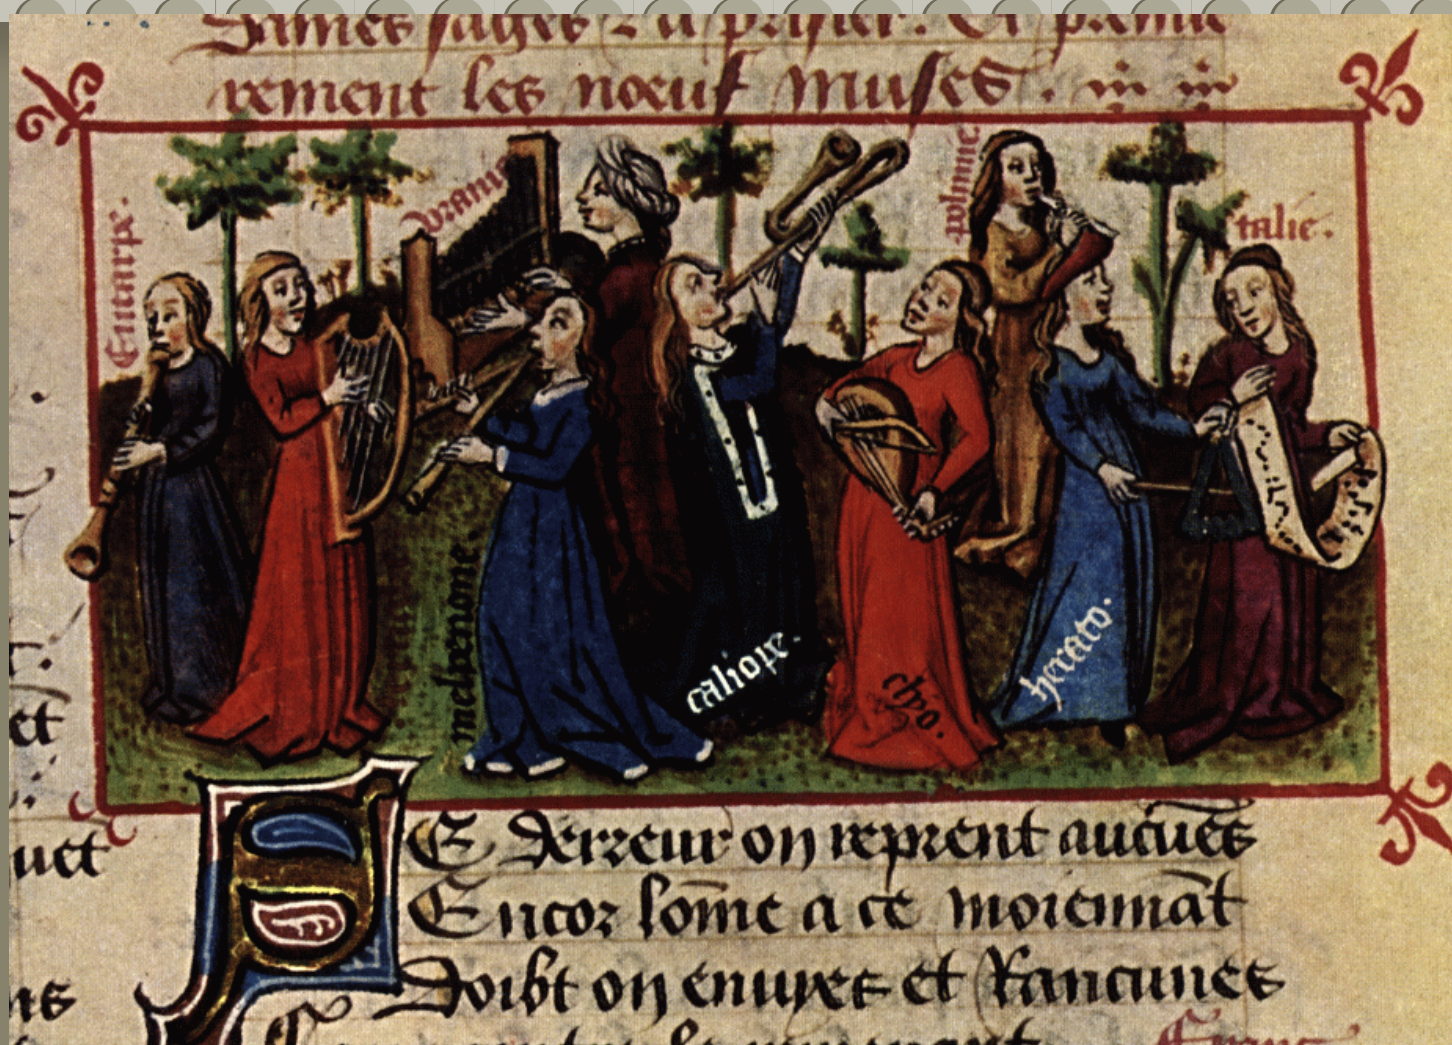 Dames sages & a priser. Et premie
rement les noeuf muses.
Eutarpe.
vranie
polimie.
talie.
melpemone.
caliope.
clyo.
herato.
SE derreur on reprent aucunes
Encor some a ce moiennāt
Doibt on enuyes et Rancunes
et
uct
ns